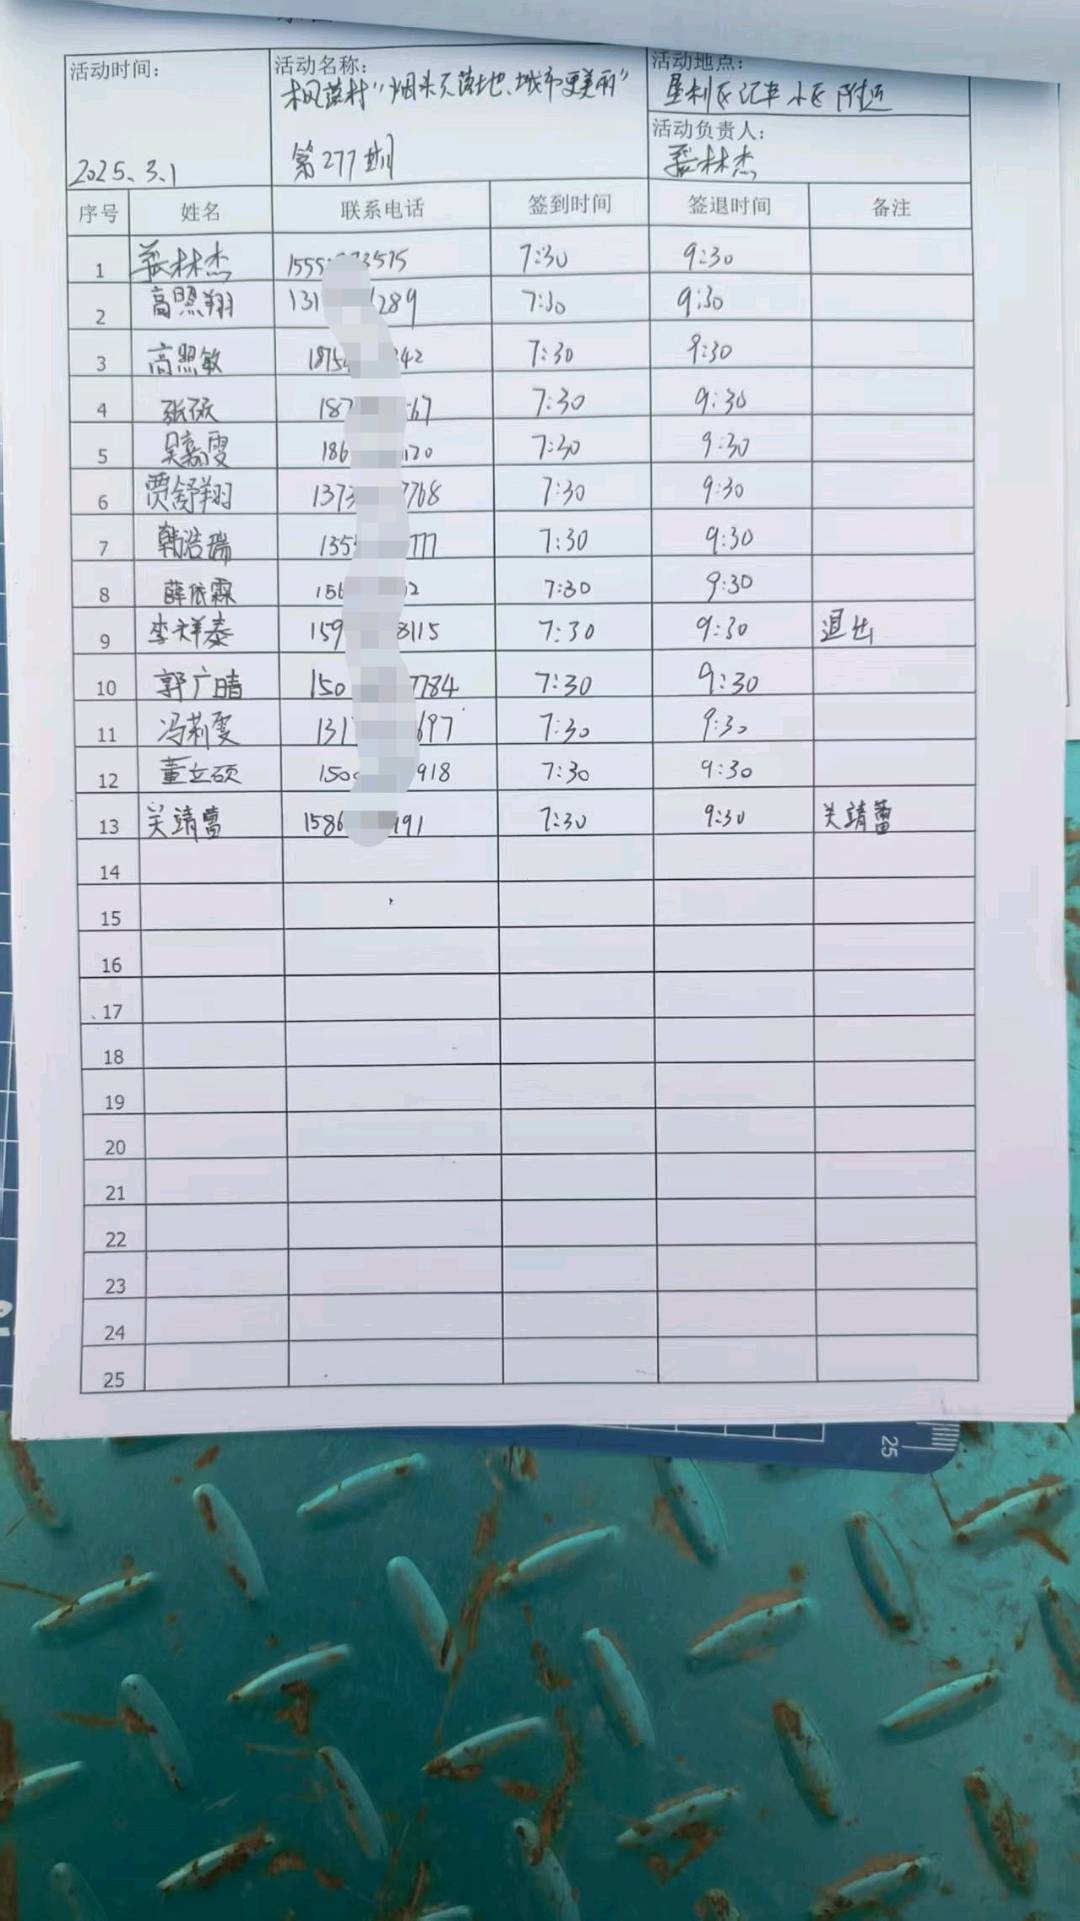 活动时间：
2025.3.1
活动名称：
枫落村"烟头不落地、城市更美丽"
第277期
活动地点：
垦利区 小区附近
活动负责人：
张林杰
序号 姓名 联系电话 签到时间 签退时间 备注
1 张林杰 1555 3575 7:30 9:30
2 高照翔 131 289 7:30 9:30
3 高照敏 1875 342 7:30 9:30
4 张硕 187 67 7:30 9:30
5 吴嘉雯 186 120 7:30 9:30
6 贾舒翔 1373 7768 7:30 9:30
7 韩浩瑞 155 777 7:30 9:30
8 薛依霖 156 2 7:30 9:30
9 李祥泰 159 8115 7:30 9:30 退出
10 郭广晴 150 7784 7:30 9:30
11 冯莉雯 131 697 7:30 9:30
12 董立硕 150 918 7:30 9:30
13 关靖蕾 1586 191 7:30 9:30 关靖蕾
14
15
16
17
18
19
20
21
22
23
24
25
25